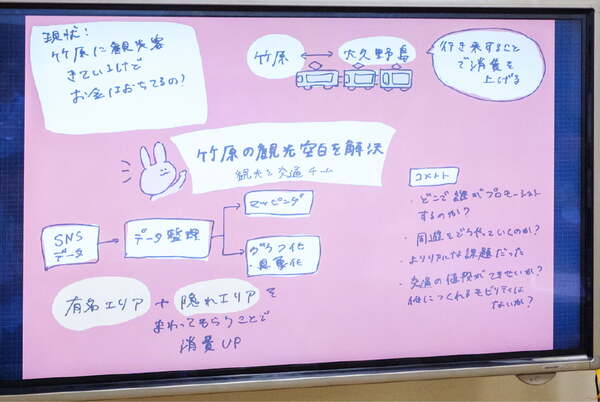 現状:
竹原に観光客
きているけど
お金はおちてるの?
竹原 ↔ 大久野島
行き来すること
で消費を
上げる
竹原の観光空白を解決
観光と交通チーム
SNS
データ
データ整理
マッピング
グラフ化
・具象化
有名エリア + 隠れエリアを
まわってもらうことで
消費UP
コメント
・どこで誰がプロモーション
するのか?
・周遊をどうやっていくのか?
・よりリアルな課題だった
・交通の値段ができせいか?
他につくれるモビリティは
ないか?